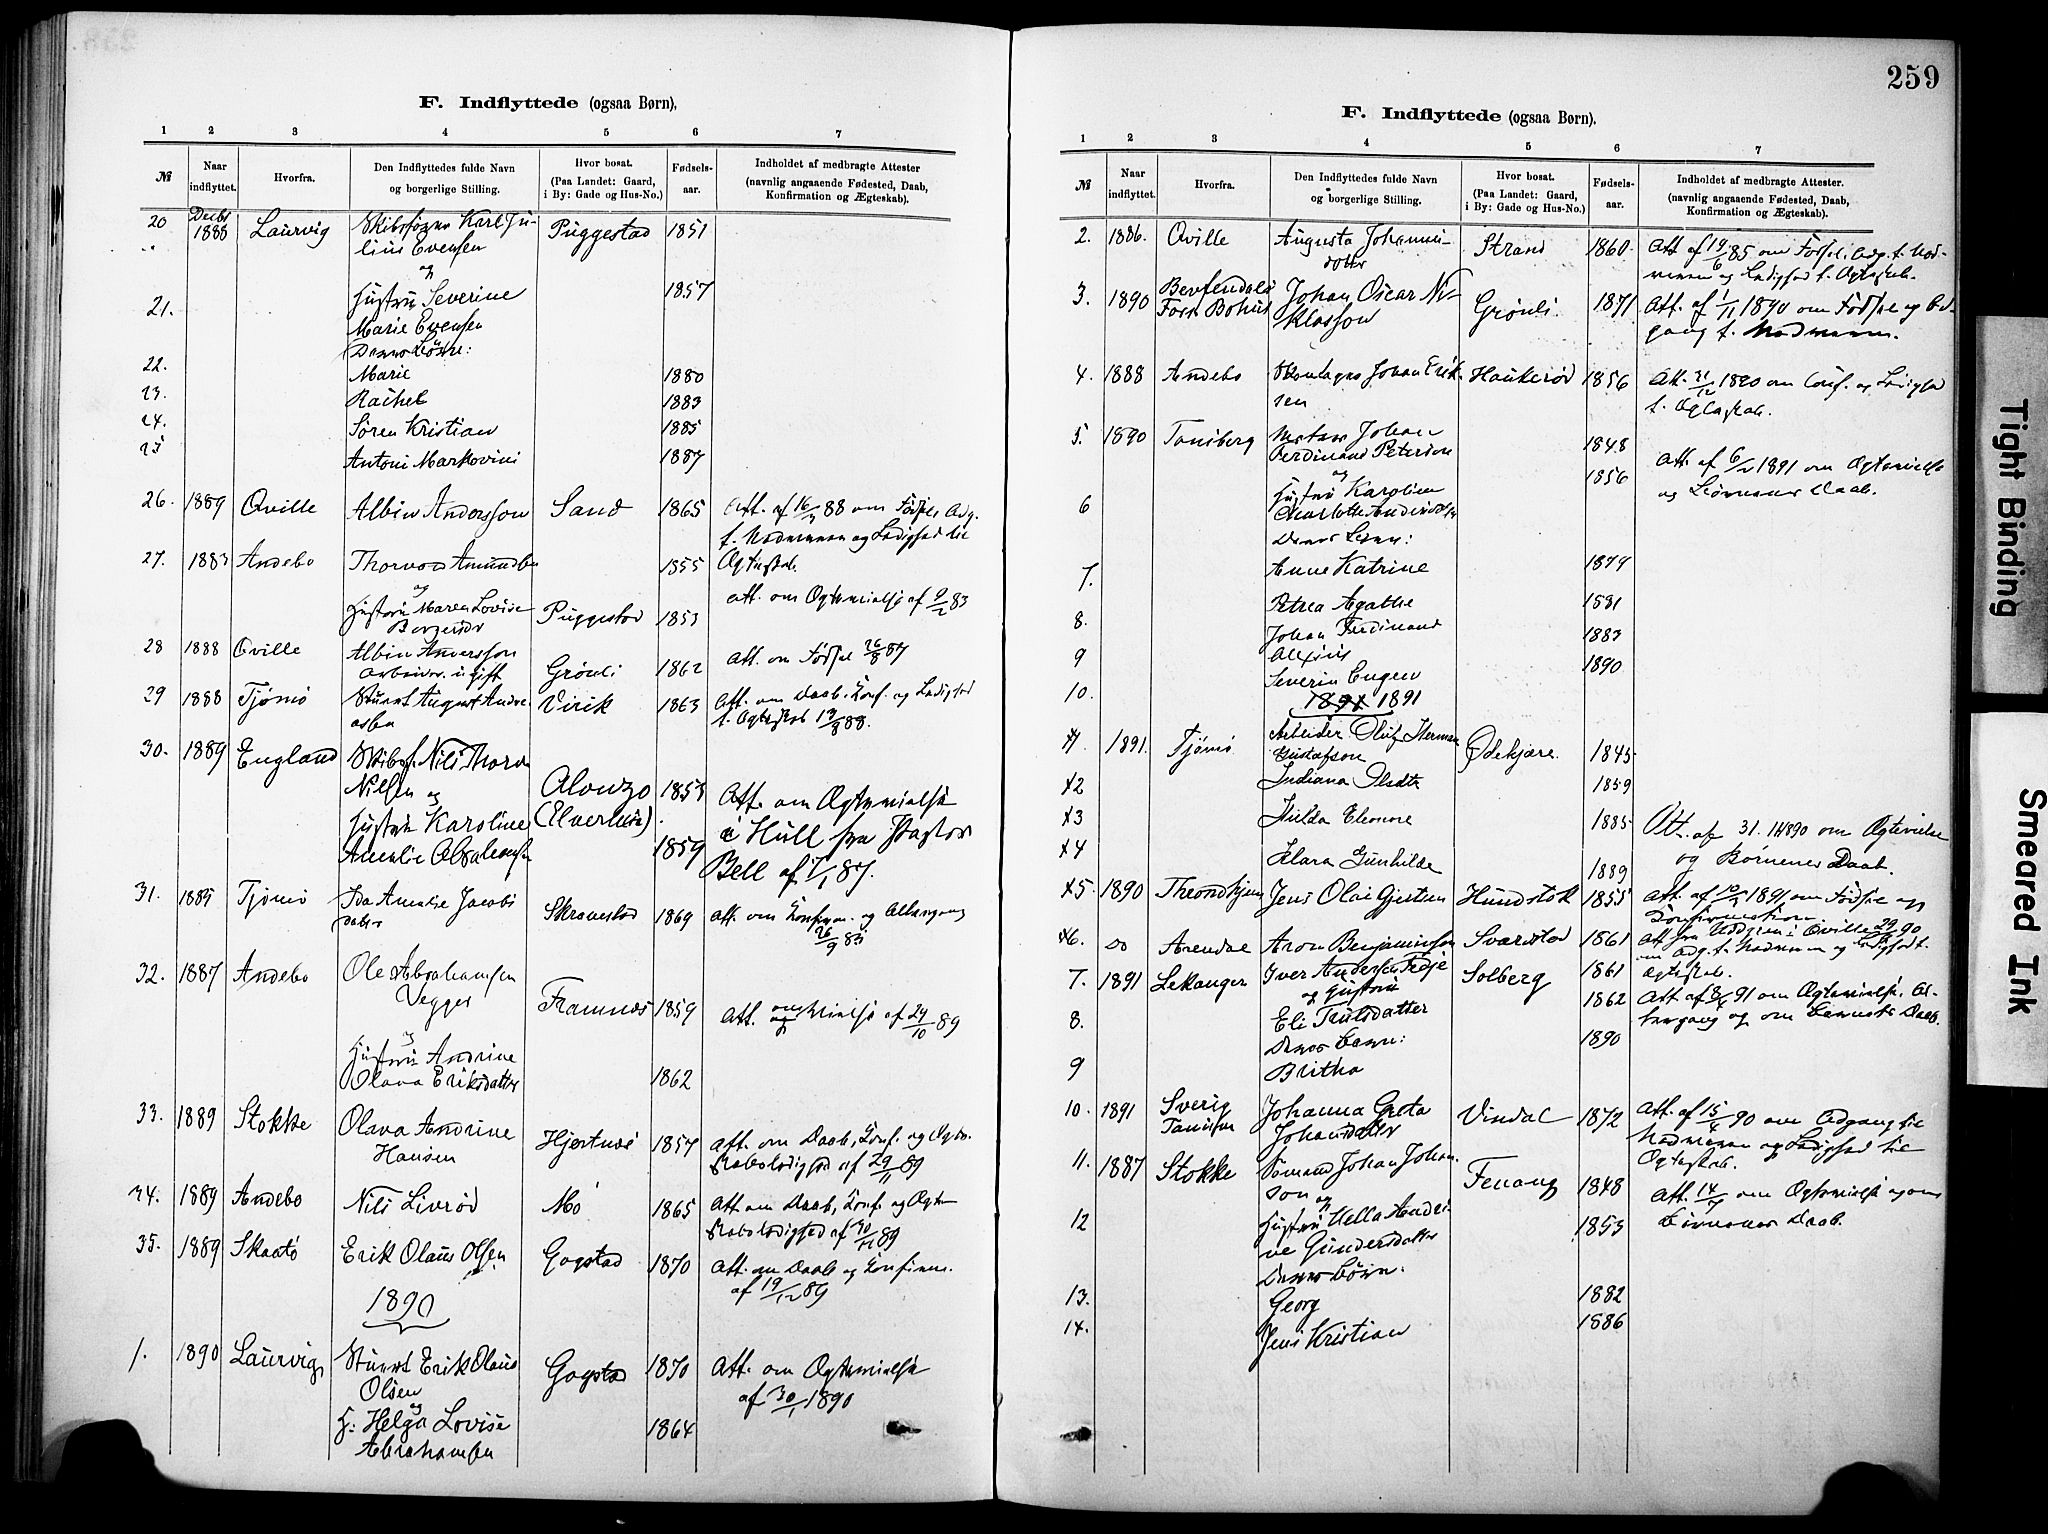 259
F. Indflyttede (ogsaa Børn).
1 2 3 4 5 6 7
№ Naar indflyttet. Hvorfra. Den Indflyttedes fulde Navn og borgerlige Stilling. Hvor bosat. (Paa Landet: Gaard, i By: Gade og Hus-No.) Fødsels-aar. Indholdet af medbragte Attester (navnlig angaaende Fødested, Daab, Konfirmation og Ægteskab).
20 Decbr 1888 Laurvig Karl Ju- Puggestad 1851
lius Evensen
og
21. Hustru Severine 1857
Marie Evensen
Deres Børn:
22. Marie 1880
23. Rachel 1883
24. Søren Kristian 1885
25 Antoni Markovini 1887
26. 1889 Qville Albin Andersson Sand 1865 Att. af 16/3 88 om Fødsel, Adg.
t. Nadveren og Ledighed til
27. 1883 Andebo Thorvald Amundsen 1855 Ægteskab.
og
Hustru Maren Lovise Puggestad 1853 Att. om Ægtevielse af 9/2 83
28 1888 Qville Albin Andersson
Arbeider. ugift Grönli 1862 Att. om Fødsel 26/8 87
29 1888 Tjømø Stuert August Andre- Virik 1863 Att. om Daab. Konf. og Ledighed
asen t. Ægteskab 19/8 88.
30. 1889 England Skibsf. Nils Thorv.
Nilsen og Alonzo 1853 Att. om Ægtevielse
Hustru Karoline i Hull fra Pastor
Amalie Abrahamsen 1859 Bell af 7/1 87.
31. 1889 Tjømø Ida Amalie Jacobs
datter 1869 Att. om Konfirm. og Altergang
26/9 83
32. 1887 Andebo Ole Abrahamsen
Vegger Framnes 1859 Att. om Vielse af 29/10 89
og
Hustru Andrine
Olava Eriksdatter 1862
33. 1889 Stokke Olava Andrine
Hansen Hjertnes 1857 Att. om Daab, Konf. og Ægte-
skabsledighed af 29/11 89
34. 1889 Andebo Nils Livrød Mo 1865 Att. om Daab, Konf. og Ægte
skabsledighed af 30/11 89
35. 1889 Skaatø Erik Olaus Olsen Gogstad 1870 Att. om Daab og Konfirm.
af 19/12 89
1890
1. 1890 Laurvig Stuert Erik Olaus
Olsen Gogstad 1870 Att. om Ægtevielse
og af 30/1 1890
H: Helga Lovise 1864
Abrahamsen
F. Indflyttede (ogsaa Børn).
1 2 3 4 5 6 7
№ Naar indflyttet. Hvorfra. Den Indflyttedes fulde Navn og borgerlige Stilling. Hvor bosat. (Paa Landet: Gaard, i By: Gade og Hus-No.) Fødsels-aar. Indholdet af medbragte Attester. (navnlig angaaende Fødested, Daab, Konfirmation og Ægteskab).
2. 1886. Qville Augusta Johannes- Strand 1860 Att af 19/6 85 om Fødsel. Adg. t. Nad-
dotter veren og Ledighed t. Ægteskab.
3. 1890 Bohus Johan Oscar Ni- Grönli. 1871 Att. af 1/11 1890 om Fødsel og Ad-
klasson gang t. Nadveren.
4. 1888 Andebo Johan Erik- Haukerød 1856 Att. 31/12 1880 om Conf. og Ledighed
sen t. Ægteskab.
5. 1890 Tønsberg Johan
Ferdinand Peterson 1848
og Att. af 6/2 1891 om Ægtevielse
6 Hustru Karoline 1856 og Børnenes Daab.
Charlotte
Deres Børn:
7. Anne Katrine 1879
8. Petrea Agathe 1881
9 Johan Ferdinand 1883
Alexius
10. Severin Eugen 1890
1891 1891
1 1891. Tjømø Arbeider Oluf Herman
Gustafson Ødekjære. 1845
2 Indiana Olsdtr 1859
3 Hilda Eleonore 1885 Att. af 31. 1890 om Ægtevielse
4 Klara Gunhilde 1889 og Børnenes Daab.
5. 1890 Throndhjem Jens Olai Gjertsen 1855 Att. af 10/2 1891 om Fødsel og
Konfirmation.
6. do Arendal Aron Benjaminson Svarstad 1861 Att fra Qville 29/9 90
om Adg. t. Nadveren og Ledighed t.
7. 1891 Lekanger Iver Andersen Solberg 1861 Ægteskab.
og Hustru 1862 Att af 8/6 91 om Ægtevielse, Al-
8. Eli Trulsdatter tergang og om Barnets Daab.
Deres Barn: 1890
9 Britha
10. 1891 Sverig Johanna Greta Vindal 1872 Att. af 15/4 90 om Adgang til
Tanum Johansdatter Nadveren og Ledighed til
Ægteskab.
11. 1887 Stokke Sømand Johan Johan-
son og 1848 Att. 14/ om Ægtevielse og om
12 Hustru Hella Andri- 1853 Børnenes Daab.
ne Gundersdatter
Deres Børn:
13. Georg 1882
14. Jens Kristian 1886
Tight Binding
Smeared Ink